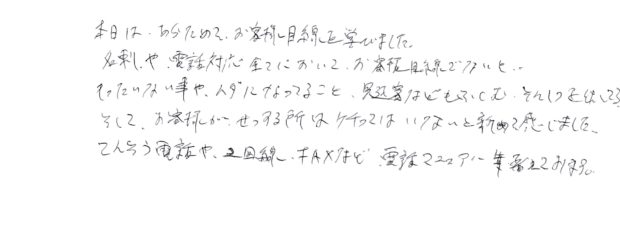 本日は、あらためて、お客様目線を学びました。
名刺や、電話対応全てにおいて、お客様目線でないと、
もったいない事や、ムダになってること、見込客などもふくむ、そんしつを出してる
そして、お客様が、せっする所はケチってはいけないと新めて感じました。
てんそう電話や、2回線、FAXなど 電話マニュアル